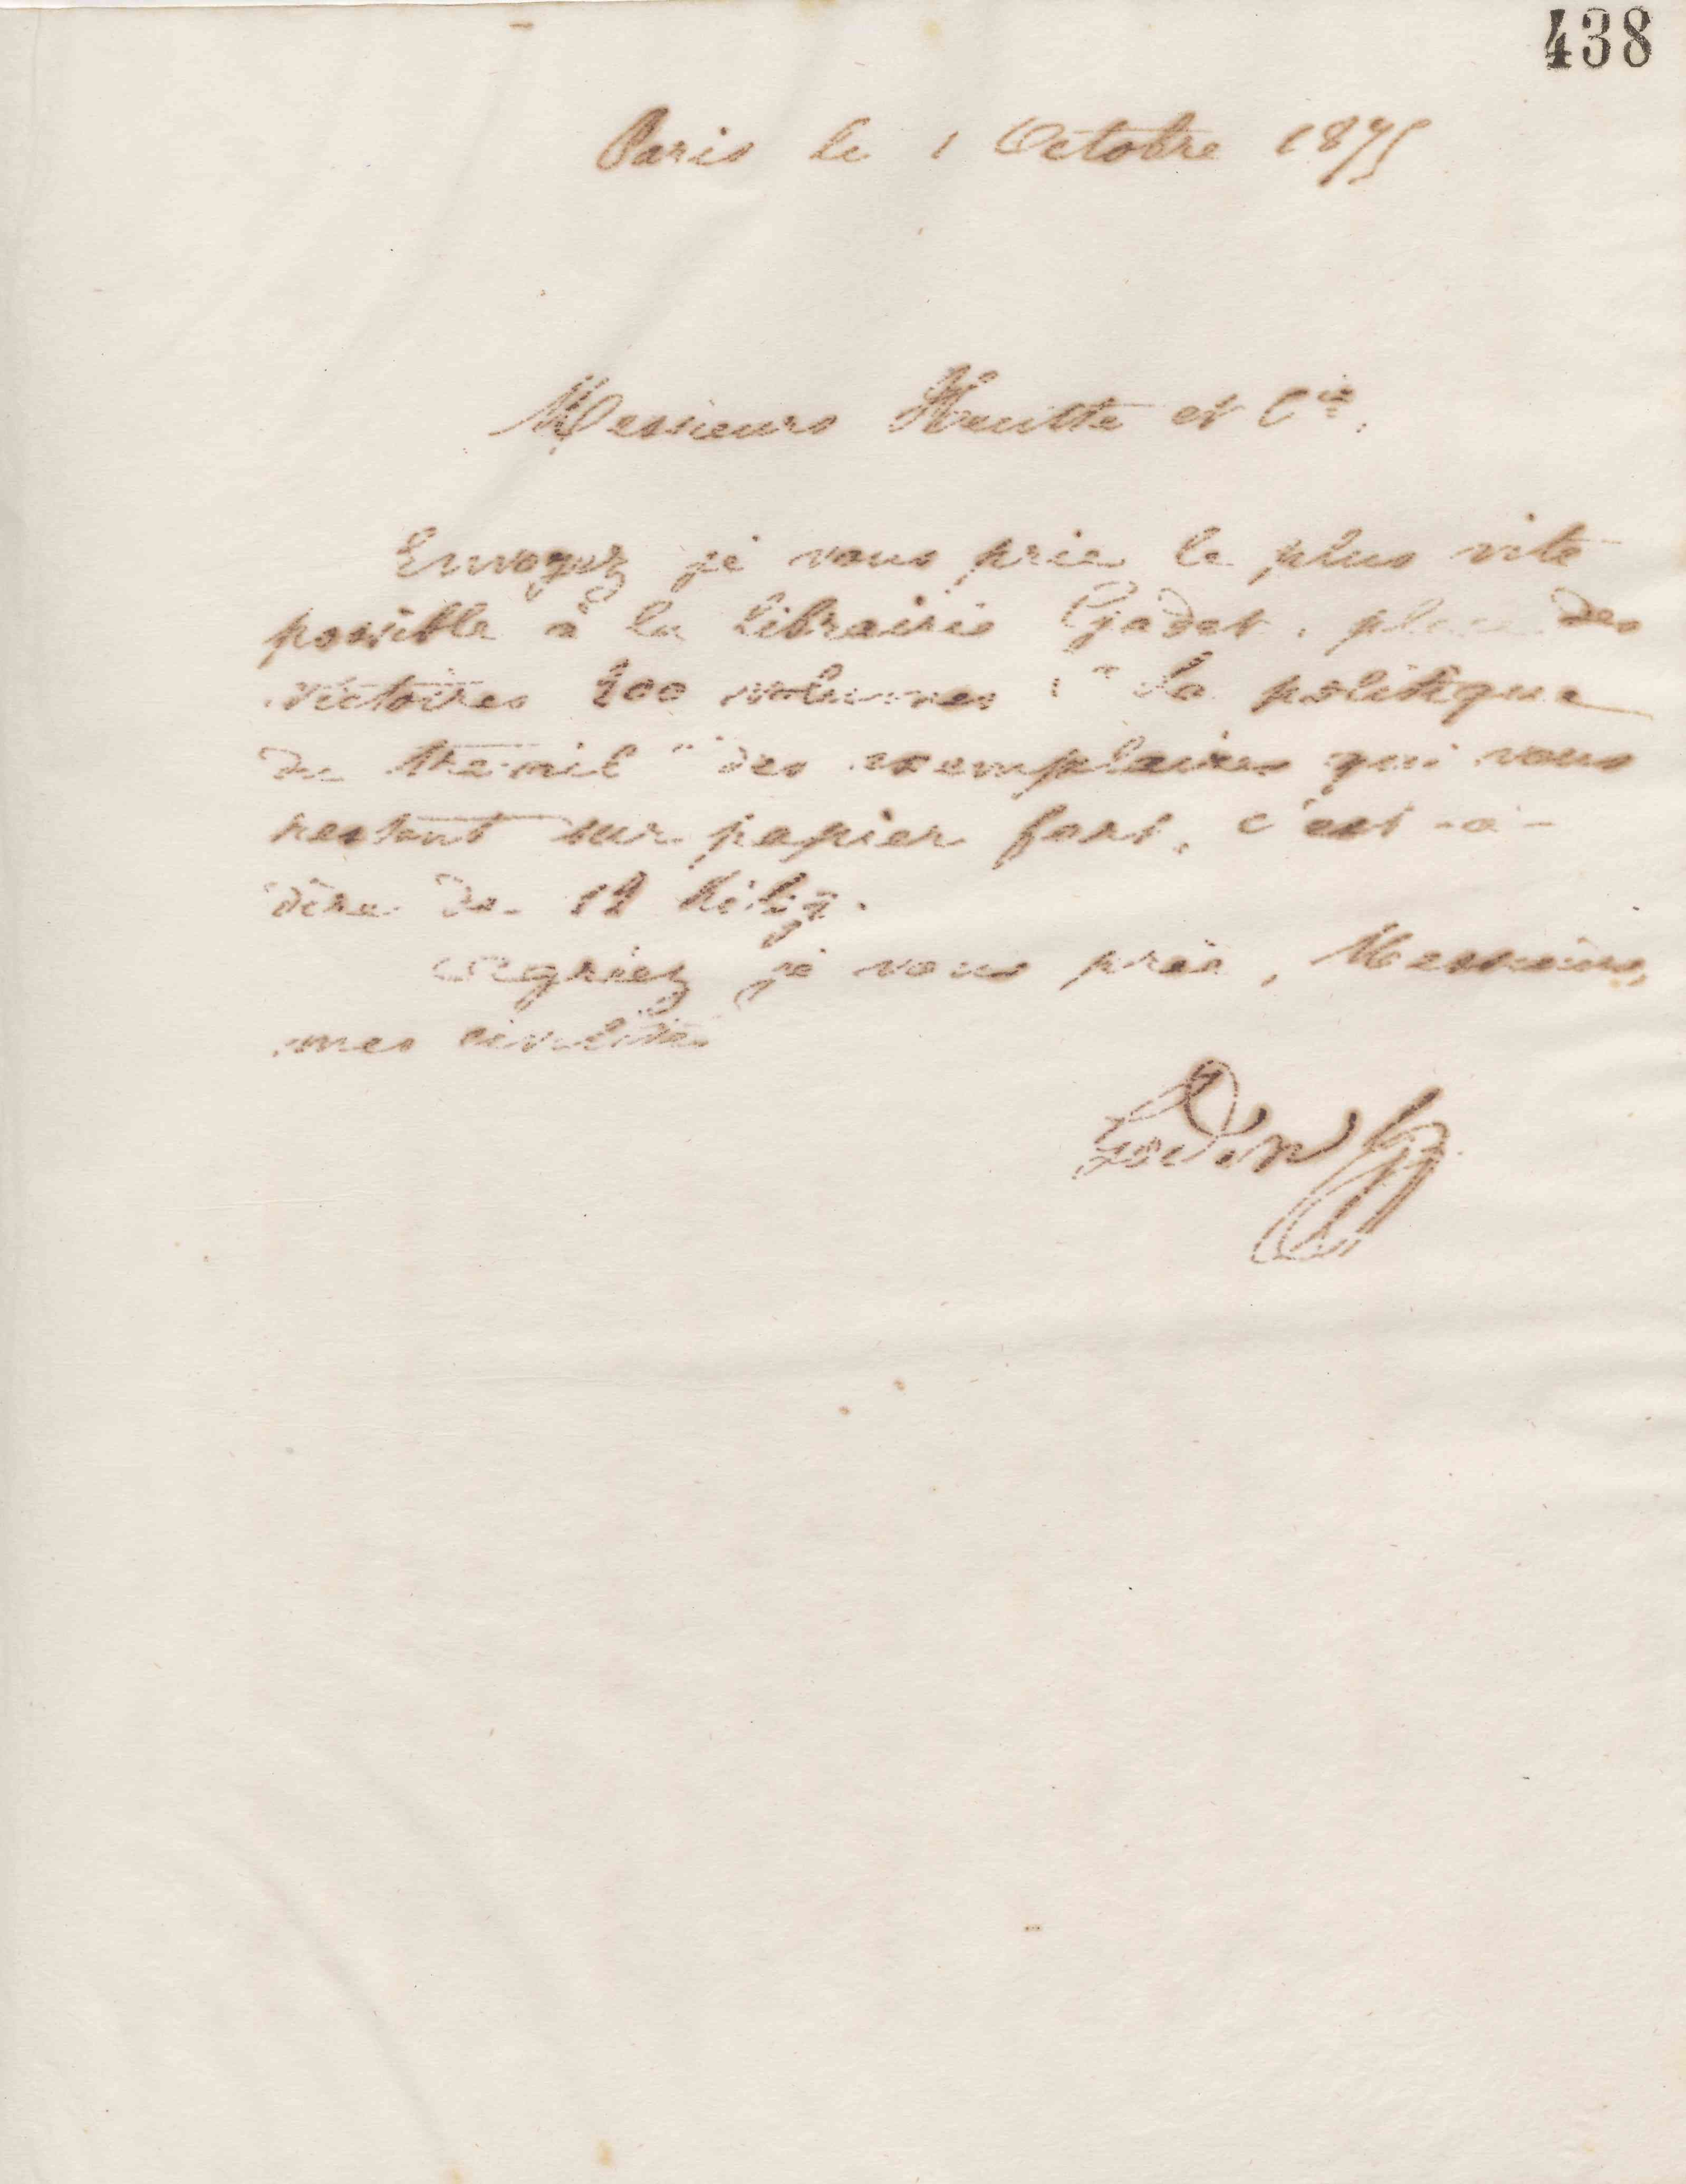 438
Paris le 1 Octobre 1875
Messieurs Heutte et Cie.
Envoyez je vous prie le plus vite
possible à la librairie Godet, place des
victoires 200 volumes : "La politique
du travail" des exemplaires qui vous
restent sur papier fort, c'est-à-
dire de 12 Kilog.
Agréez je vous prie, Messieurs,
mes civilités
Godin